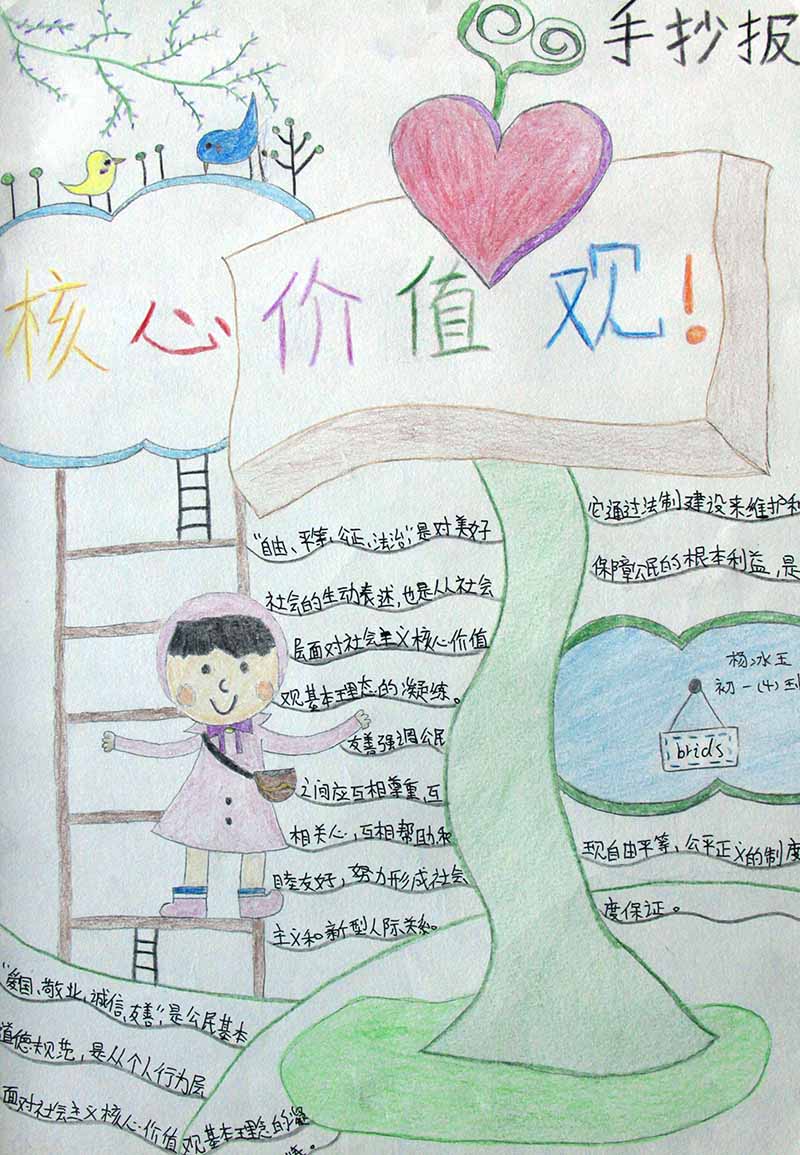 手抄报
核心价值观!
"自由、平等、公正、法治,"是对美好
社会的生动表述,也是从社会
层面对社会主义核心价值
观基本理念的凝练。
友善强调公民
之间应互相尊重,互
相关心,互相帮助和
睦友好,努力形成社会
主义和新型人际关系。
"爱国、敬业、诚信、友善",是公民基本
道德规范,是从个人行为层
面对社会主义核心价值观基本理念的凝
练。
它通过法制建设来维护和
保障公民的根本利益,是
杨冰玉
初一(4)班
brids
现自由平等,公平正义的制度
度保证。